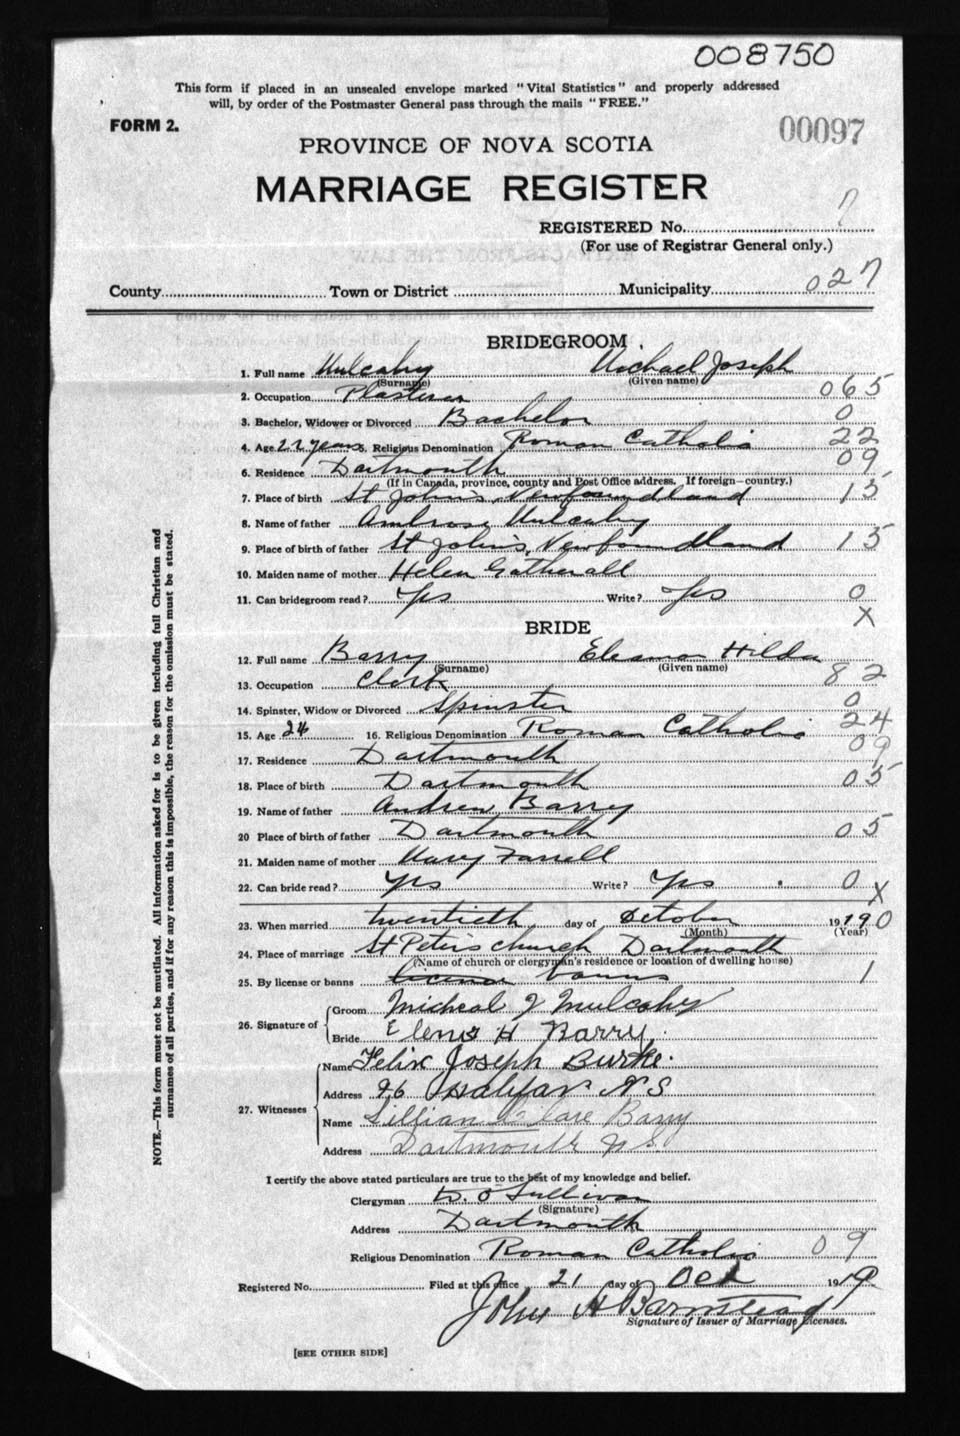 008750
This form if placed in an unsealed envelope marked "Vital Statistics" and properly addressed
will, by order of the Postmaster General pass through the mails "FREE."
FORM 2.
00097
PROVINCE OF NOVA SCOTIA
MARRIAGE REGISTER
REGISTERED No. 7
(For use of Registrar General only.)
County Town or District Municipality 027
BRIDEGROOM
1. Full name Mulcahy Michael Joseph
(Surname) (Given name)
2. Occupation Plasterer 065
3. Bachelor, Widower or Divorced Bachelor 0
4. Age 22 years 5. Religious Denomination Roman Catholic 22
6. Residence Dartmouth 09
(If in Canada, province, county and Post Office address. If foreign—country.)
7. Place of birth St John's, Newfoundland 15
8. Name of father Ambrose Mulcahy
9. Place of birth of father St John's, Newfoundland 15
10. Maiden name of mother Helen Gatherall
11. Can bridegroom read? Yes Write? Yes 0
X
BRIDE
12. Full name Barry Eleanor Hilda
(Surname) (Given name)
13. Occupation Clerk 82
14. Spinster, Widow or Divorced Spinster 0
15. Age 24 16. Religious Denomination Roman Catholic 24
17. Residence Dartmouth 09
18. Place of birth Dartmouth 05
19. Name of father Andrew Barry
20 Place of birth of father Dartmouth 05
21. Maiden name of mother Mary Farrell
22. Can bride read? Yes Write? Yes 0
X
23. When married twentieth day of October 1919 0
(Month) (Year)
24. Place of marriage St Peter's church Dartmouth
(Name of church or clergyman's residence or location of dwelling house)
25. By license or banns license banns 1
26. Signature of
Groom Micheal J Mulcahy
Bride H Barry
27. Witnesses
Name Felix Joseph Burke
Address 96 Halifax N S
Name Lillian Clare Barry
Address Dartmouth N S.
I certify the above stated particulars are true to the best of my knowledge and belief.
Clergyman O'Sullivan
(Signature)
Address Dartmouth
Religious Denomination Roman Catholic 09
Registered No. Filed at this office 21 day of Oct 1919
John H Barnstead
Signature of Issuer of Marriage Licenses.
[SEE OTHER SIDE]
NOTE.—This form must not be mutilated. All information asked for is to be given including full Christian and
surnames of all parties, and if for any reason this is impossible, the reason for the omission must be stated.